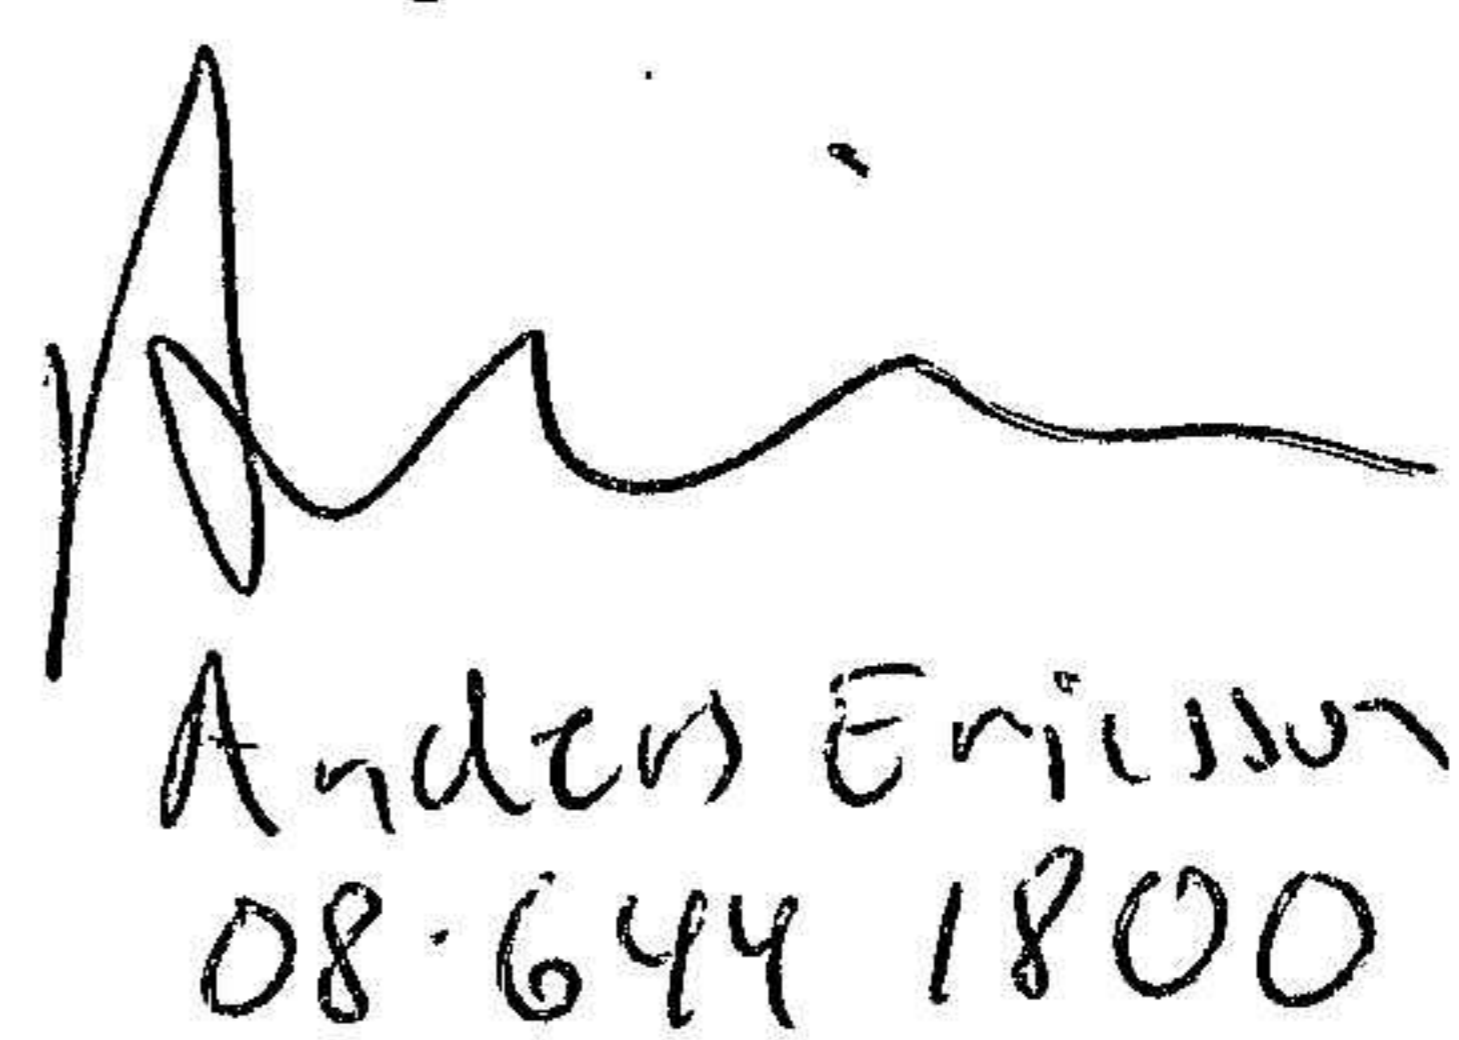 Anders Ericsson
08·644 1800